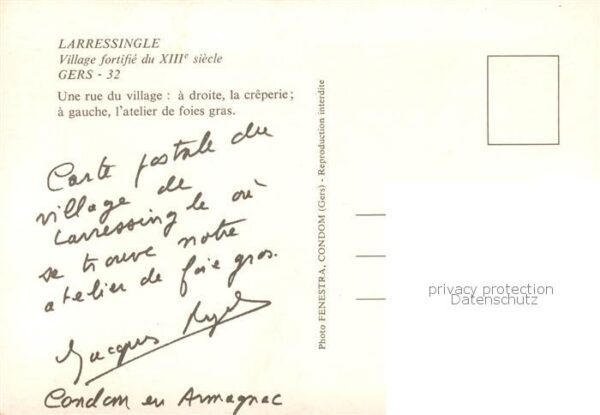 LARRESSINGLE
Village fortifié du XIIIe siècle
GERS - 32
Une rue du village : à droite, la crêperie ;
à gauche, l'atelier de foies gras.
Carte postale du
village de
Larressingle où
se trouve notre
atelier de foie gras.
Jacques
Condom en Armagnac
Photo FENESTRA, CONDOM (Gers) - Reproduction interdite
privacy protection
Datenschutz